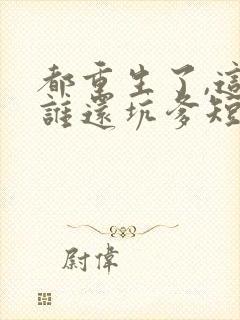 都重生了,這
誰還坑爹短
尉偉